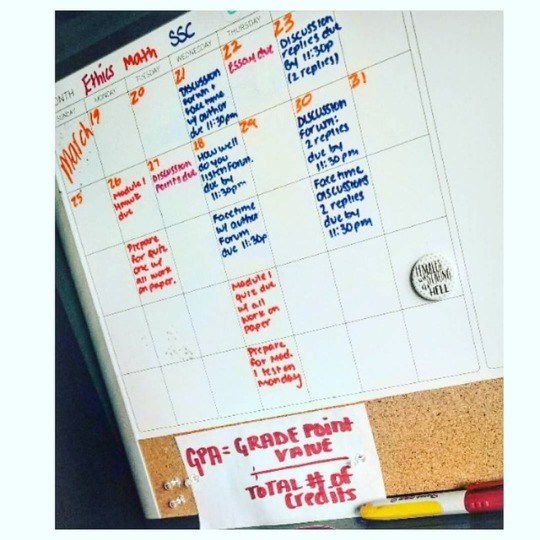 Ethics Math SSC
MONTH
SUNDAY MONDAY TUESDAY WEDNESDAY THURSDAY
March 19 20 21 22 23
Discussion
Forum +
Facetime
w/ author
due 11:30p
Essay due
Discussion
replies due
by 11:30p
(2 replies)
25 26 27 28 29 30 31
Module 1
HmWK
due
Discussion
Points due
How well
do you
listen Forum.
due by
11:30pm
Discussion
Forum:
2 replies
due by
11:30pm
Prepare
for Quiz
one w/
all work
on paper.
Facetime
w/ author
Forum
due 11:30p
Facetime
discussions
2 replies
due by
11:30pm
Module 1
quiz due
w/ all
work on
paper
Prepare
for Mod.
1 test on
Monday
FEMALES
STRONG
HELL
GPA = GRADE Point
VALUE
TOTAL # of
Credits